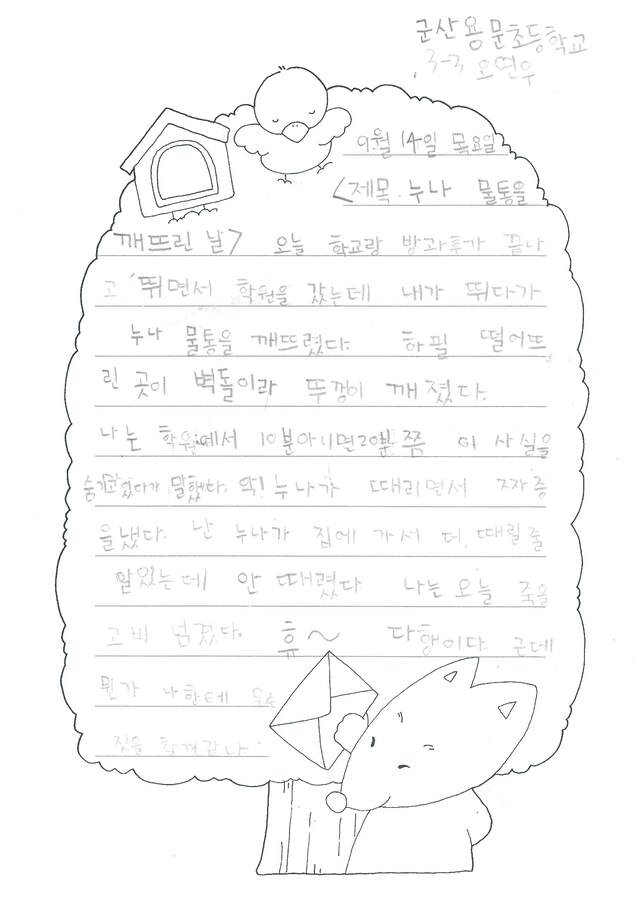 군산용문초등학교
3-3 오연우
9월 14일 목요일
<제목. 누나 물통을
깨뜨린 날> 오늘 학교랑 방과후가 끝나
고 뛰면서 학원을 갔는데 내가 뛰다가
누나 물통을 깨뜨렸다. 하필 떨어뜨
린 곳이 벽돌이라 뚜껑이 깨졌다.
나는 학원에서 10분아니면20분쯤 이 사실을
숨기고있다가 말했다. 악! 누나가 때리면서 짜증
을냈다. 난 누나가 집에 가서 더 때릴줄
알았는데 안 때렸다. 나는 오늘 죽을
고비 넘겼다. 휴~ 다행이다. 근데
뭔가 나한테 무슨
짓을 할꺼같다.